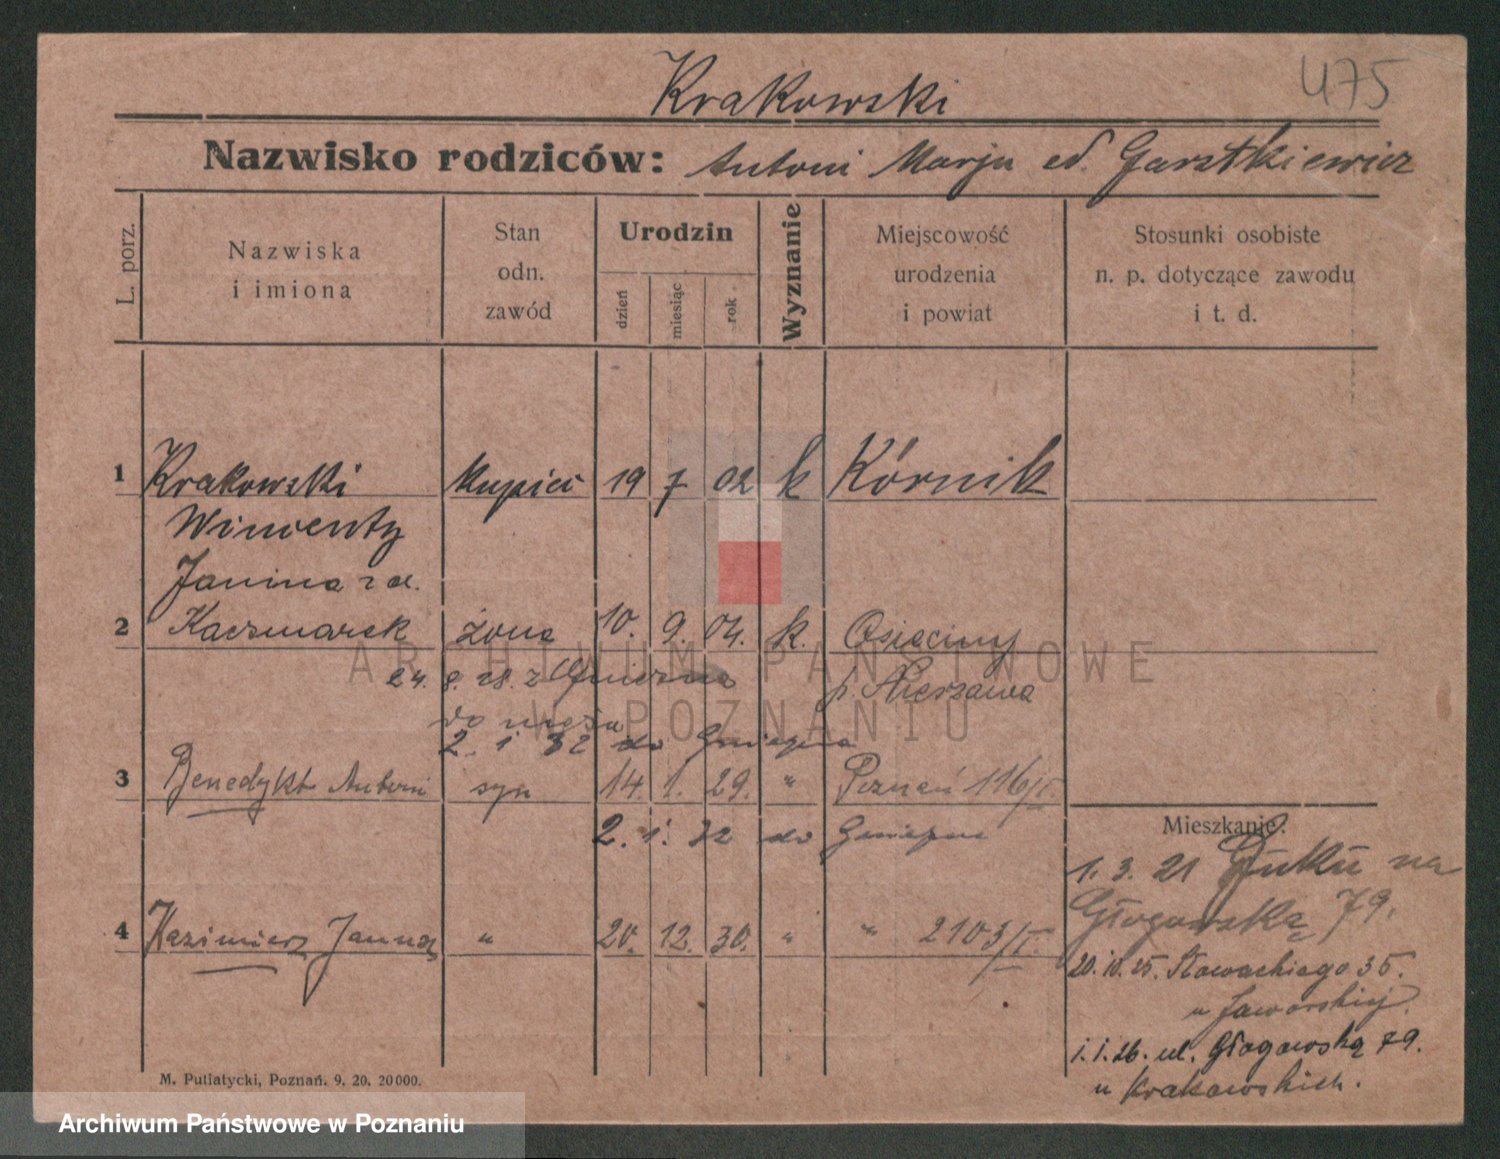 475
Krakowski
Nazwisko rodziców: Antoni Marja Garstkiewicz
L. porz.
Nazwiska
i imiona
Stan
odn.
zawód
Urodzin
dzień
miesiąc
rok
Wyznanie
Miejscowość
urodzenia
i powiat
Stosunki osobiste
n. p. dotyczące zawodu
i t. d.
1 Krakowski kupiec 19 7 02 k Kórnik
Wincenty
Janina z
2 Kaczmarek żona 10. 9. 04. k. Osięciny
24. 8. 28. z Gniezna p. Nieszawa
do męża
2. 1 32 do Gniezna
3 Benedykt Antoni syn 14. 1. 29. " Poznań 116/I.
2. 1. 32 do Gniezna
Mieszkanie:
1. 3. 21 na
Głogowską 79.
4 Kazimierz " 20. 12. 30. " " 2103/I.
20. 10. 25. Słowackiego 35.
u Jaworskiej.
1. 1. 26. ul. Głogowska 79.
u Krakowskich.
M. Putiatycki, Poznań. 9. 20. 20000.
ARCHIWUM PAŃSTWOWE
W POZNANIU
Archiwum Państwowe w Poznaniu